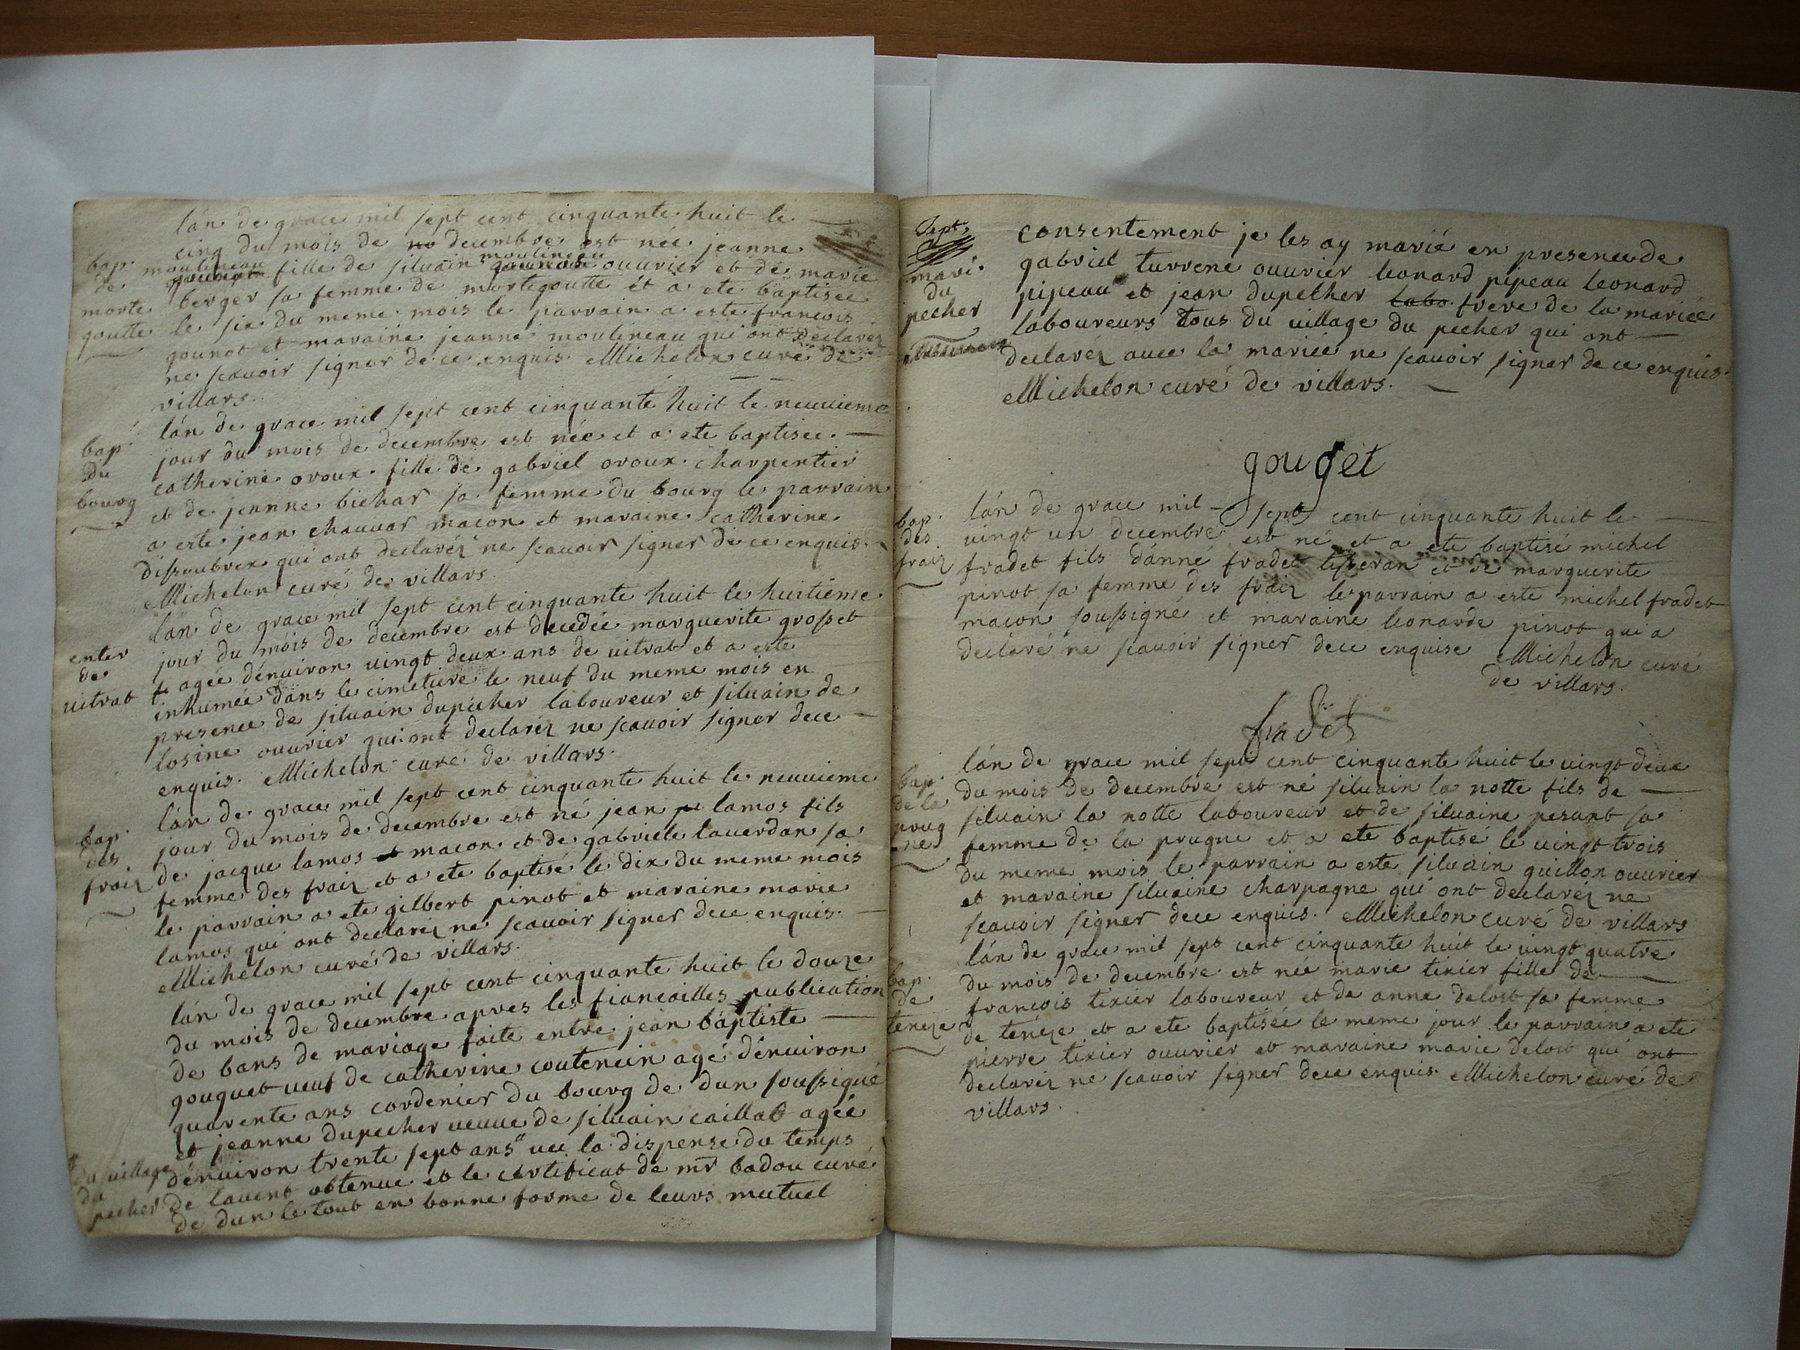 lán de grace mil sept cent cinquante huit le
cinq du mois de decembre est née jeanne
bap. moulineau fille de siluain moulineau ouurier et de marie
de morte goutte
berger sa femme de mortegoutte et a ete baptisee
le six du meme mois le parrain a este francois
gounot et maraine jeanne moulineau qui ont declarez
ne scauoir signer de ce enquis Michelon curé de
villars.
bap. Du bourg
lán de grace mil sept cent cinquante huit le neuuieme
jour du mois de decembre est née et a ete baptisee
catherine oroux fille de gabriel oroux charpentier
et de jeanne bichar sa femme du bourg le parrain
a este jean chauuar macon et maraine catherine
dissoubrex qui ont declaréz ne scauoir signer de ce enquis.
Michelon curé de villars
enter de uitrat
lán de grace mil sept cent cinquante huit le huitiéme
jour du mois de decembre est decedée marguerite grosset
agée dénuiron uingt deux ans de uitrat et a este
inhumée dans le cimetiere le neuf du meme mois en
presence de siluain dupecher laboureur et siluain de
losine ouurier qui ont declaréz ne scauoir signer de ce
enquis. Michelon curé de villars.
bap. des fraiz
lán de grace mil sept cent cinquante huit le neuuieme
jour du mois de decembre est né jean lamos fils
de jacque lamos macon et de gabriele lauerdan sa
femme des fraiz et a ete baptisé le dix du meme mois
le parrain a ete gilbert pinot et maraine marie
lamos qui ont declaréz ne scauoir signer de ce enquis.
Michelon curé de villars.
lán de grace mil sept cent cinquante huit le douze
du mois de decembre apres les fiancailles publication
de bans de mariage faite entre jean baptiste
gouguet ueuf de catherine coutencin agé dénuiron
quarente ans cordenier du bourg de dun soussigué
et jeanne dupecher ueuue de siluain caillad agée
dénuiron trente sept ans ueu la dispense du temps
du village du pecher
de lauent obtenue et le certificat de mr badou curé
de dun le tout en bonne forme de leurs mutuel
Sept.
mari. du pecher
consentement je les ay marié en presence de
gabriel turrene ouurier leonard pipeau leonard
pipeau et jean dupecher labo frere de la mariée
laboureurs tous du uillage du pecher qui ont
declaréz auec la mariée ne scauoir signer de ce enquis.
Michelon curé de villars.
gouget
bap. des fraiz
lán de grace mil sept cent cinquante huit le
uingt un decembre est né et a ete baptisé michel
fradet fils dánné fradet tisseran et de marguerite
pinot sa femme des fraiz le parrain a este michel fradet
macon soussigne et maraine leonarde pinot qui a
declaré ne scauoir signer de ce enquise Michelon curé
de villars.
fradet
bap. de la prugne
lán de grace mil sept cent cinquante huit le uingt deux
du mois de decembre est né siluain la notte fils de
siluain la notte laboureur et de siluaine pesant sa
femme de la prugne et a ete baptisé le uingt trois
du meme mois le parrain a este siluain guillon ouurier
et maraine siluaine charpagne qui ont declaréz ne
scauoir signer de ce enquis. Michelon curé de villars
bap. de teneze
lán de grace mil sept cent cinquante huit le uingt quatre
du mois de decembre est née marie tixier fille de
francois tixier laboureur et de anne delost sa femme
de tenéze et a ete baptisée le meme jour le parrain a ete
pierre tixier ouurier et maraine marie delost qui ont
declaréz ne scauoir signer de ce enquis Michelon curé de
villars.